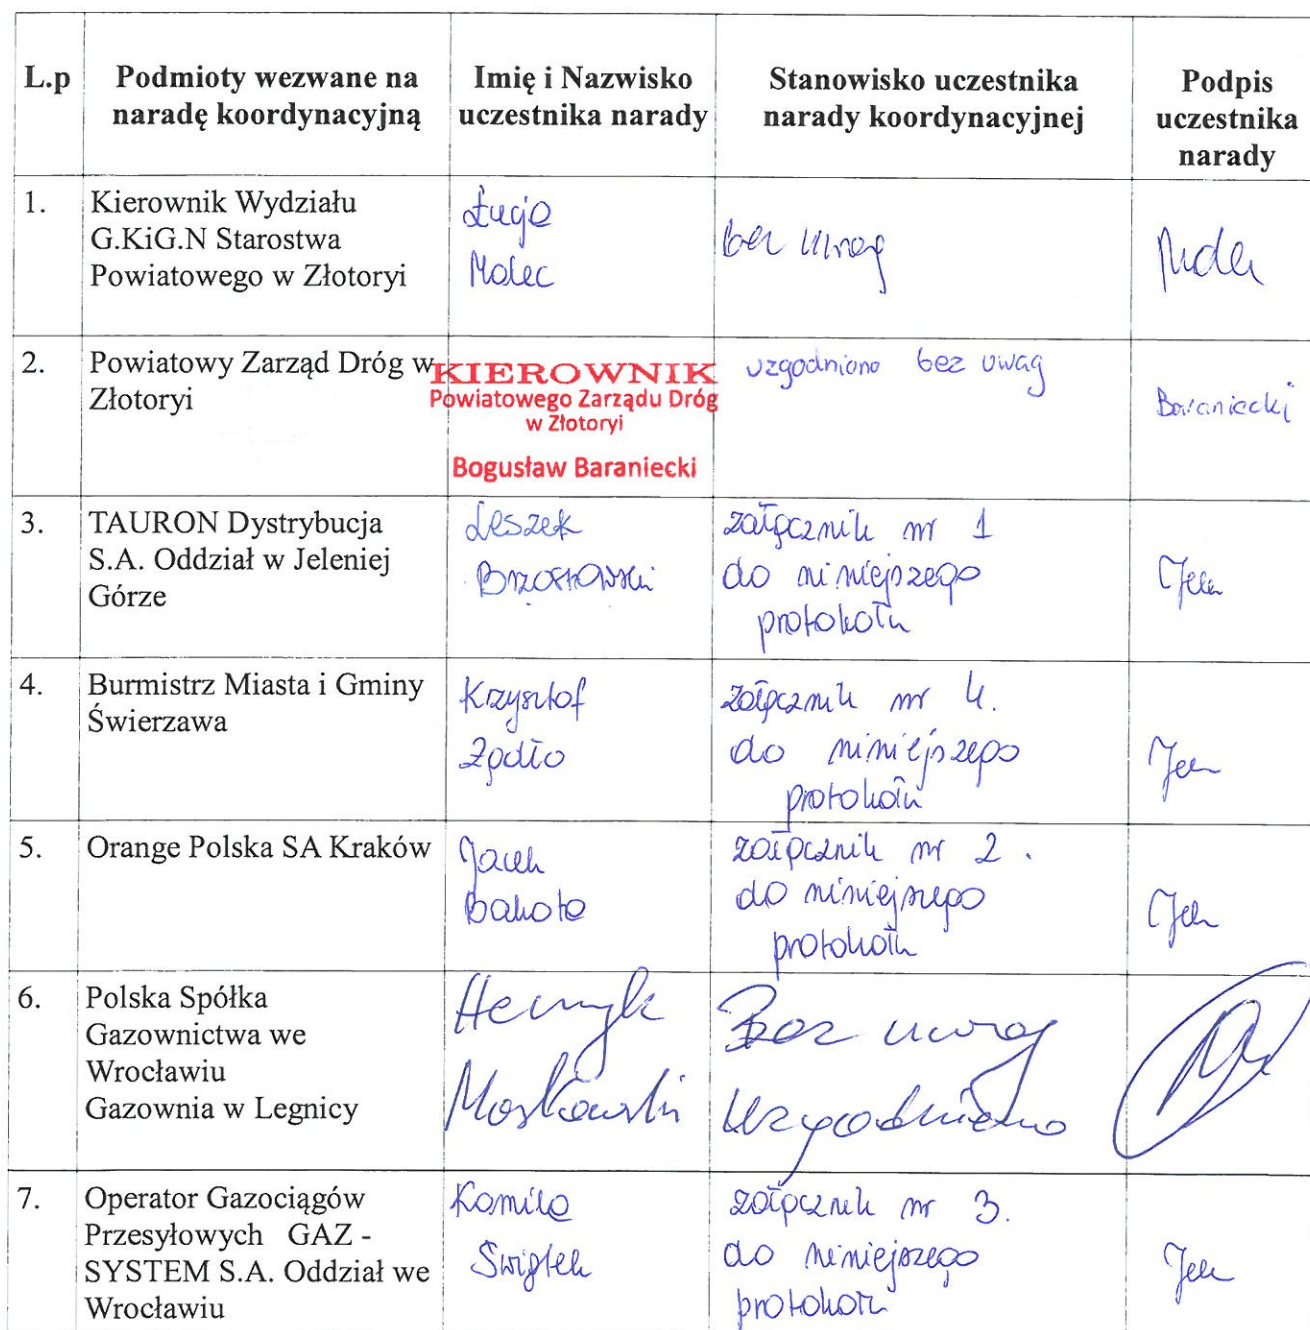 L.p
Podmioty wezwane na
naradę koordynacyjną
Imię i Nazwisko
uczestnika narady
Stanowisko uczestnika
narady koordynacyjnej
Podpis
uczestnika
narady
1.
Kierownik Wydziału
G.KiG.N Starostwa
Powiatowego w Złotoryi
Łucja
Malec
bez uwag
2.
Powiatowy Zarząd Dróg w
Złotoryi
KIEROWNIK
Powiatowego Zarządu Dróg
w Złotoryi
Bogusław Baraniecki
uzgodniono bez uwag
Baraniecki
3.
TAURON Dystrybucja
S.A. Oddział w Jeleniej
Górze
Leszek
Brzostowski
załącznik nr 1
do niniejszego
protokołu
4.
Burmistrz Miasta i Gminy
Świerzawa
Krzysztof
Żądło
załącznik nr 4.
do niniejszego
protokołu
5.
Orange Polska SA Kraków
Jacek
Bakota
załącznik nr 2.
do niniejszego
protokołu
6.
Polska Spółka
Gazownictwa we
Wrocławiu
Gazownia w Legnicy
Henryk
Moskowski
Bez uwag
Uzgodniono
7.
Operator Gazociągów
Przesyłowych GAZ -
SYSTEM S.A. Oddział we
Wrocławiu
Kamila
Świątek
załącznik nr 3.
do niniejszego
protokołu